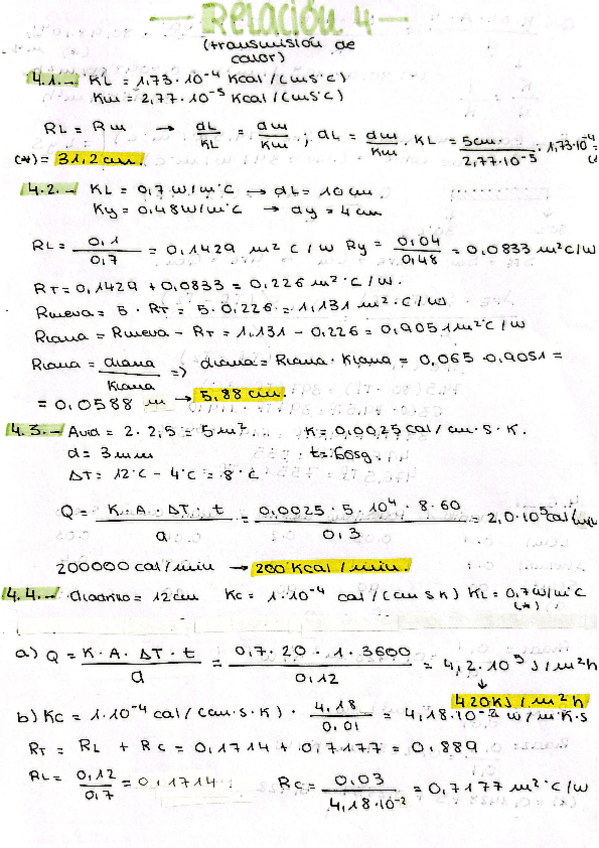 Relación 4
(transmisión de
calor)
4.1.- KL = 1,73·10⁻⁴ Kcal/(cms°C)
Km = 2,77·10⁻⁵ Kcal/(cms°C)
RL = Rm → dL/KL = dm/Km ; dL = dm/Km · KL = 5cm/2,77·10⁻⁵ · 1,73·10⁻⁴ =
(*) = 31,2 cm.
4.2.- KL = 0,7 W/m°C → dL = 10 cm
Ky = 0,48 W/m°C → dy = 4 cm
RL = 0,1/0,7 = 0,1429 m²°C/W Ry = 0,04/0,48 = 0,0833 m²°C/W
RT = 0,1429 + 0,0833 = 0,226 m²·°C/W.
Rnueva = 5 · RT = 5·0,226 = 1,131 m²·°C/W
Rlana = Rnueva - RT = 1,131 - 0,226 = 0,9051 m²°C/W
Rlana = dlana/Klana => dlana = Rlana · Klana = 0,065·0,9051 =
= 0,0588 m → 5,88 cm.
4.3.- Avid = 2·2,5 = 5 m² K = 0,0025 cal/cm·s·K.
d = 3 mm t = 60sg.
ΔT = 12°C - 4°C = 8°C
Q = K·A·ΔT·t/d = 0,0025·5·10⁴·8·60/0,3 = 2,0·10⁵ cal/min
200000 cal/min → 200 Kcal/min.
4.4.- dladrillo = 12cm Kc = 1·10⁻⁴ cal/(cm s K) KL = 0,7 W/m°C
(*)
a) Q = K·A·ΔT·t/d = 0,7·20·1·3600/0,12 = 4,2·10⁵ J/m²h
↓
420KJ/m²h
b) Kc = 1·10⁻⁴ cal/(cm·s·K) · 4,18/0,01 = 4,18·10⁻² W/m·K·s
RT = RL + RC = 0,1714 + 0,7177 = 0,889
RL = 0,12/0,7 = 0,1714 RC = 0,03/4,18·10⁻² = 0,7177 m²°C/W